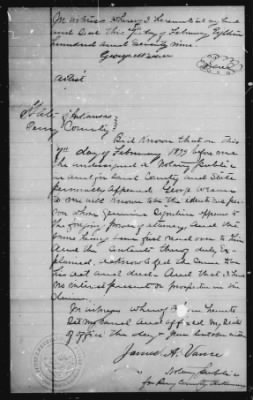 In witness whereof I hereunto set my hand
and Seal this 7th day of February Eighteen
hundred and seventy nine
George
Seal
Attest
State of Arkansas }
Perry County }
Be it Known that on this
7th day of February 1879 before me
the undersigned a Notary Public
in and for said County and State
personally appeared George
to me well Known to be the identical person
whose genuine Signature appears to
the foregoing power of attorney and that
same being been first read over to him
and the contents thereof duly Explained,
acknowledged the same to be
his act and deed. And that I have
no interest present or prospective in the
claim.
In witness whereof I have hereunto
Set my hand and affixed my Seal
of office this day &
James A. Vance
Notary Public
for Perry County Arkansas